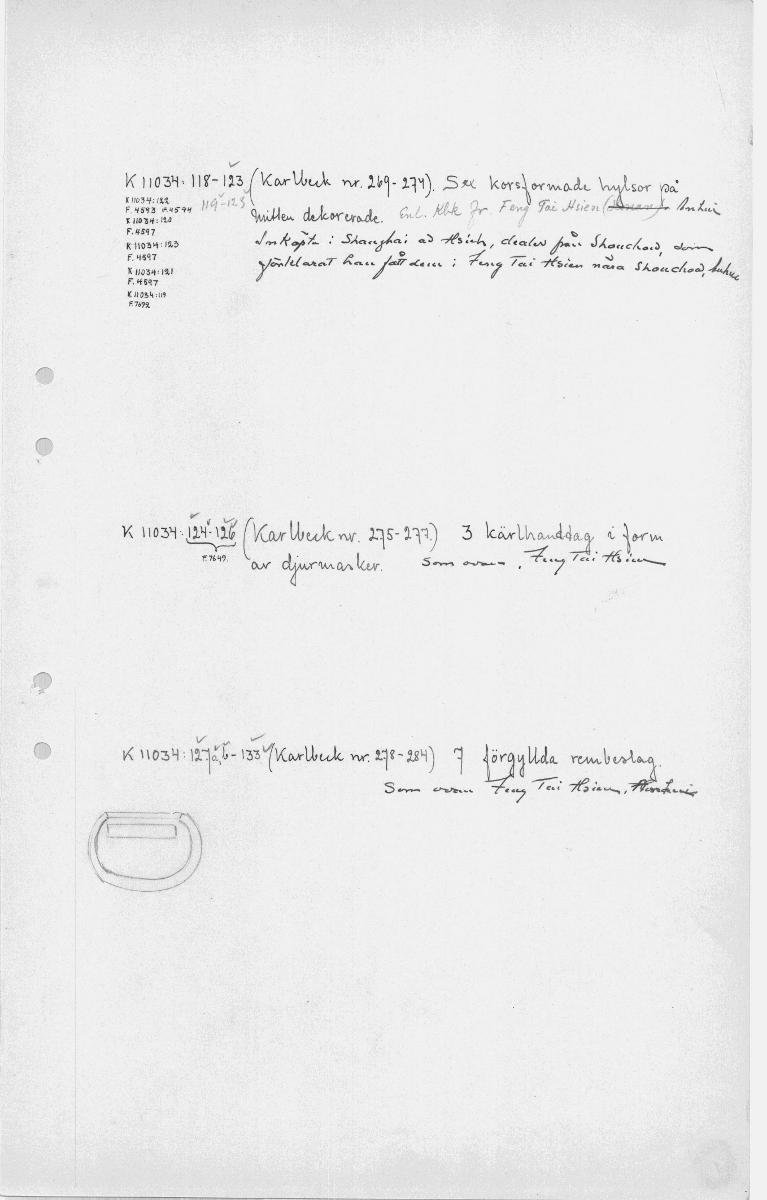 K 11034: 118-123 (Karlbeck nr. 269-274). Sex korsformade hylsor på
K 11034:122
119-123
mitten dekorerade. Enl. Kbk fr. Feng Tai Hsien (Honan) Anhui
F. 4593 F. 4594
K 11034:120
F. 4597
Inköpta i Shanghai av Hsieh, dealer från Shouchow, som
K 11034:123
F. 4597
förklarat han fått dem i Feng Tai Hsien nära Shouchow, Anhui
K 11034:121
F. 4597
K 11034:119
F. 7692
K 11034: 124-126 (Karlbeck nr. 275-277.) 3 kärlhandtag i form
F. 7649.
av djurmasker. Som ovan, Feng Tai Hsien
K 11034: 127a,b-133 (Karlbeck nr. 278-284) 7 förgyllda rembeslag.
Som ovan Feng Tai Hsien,